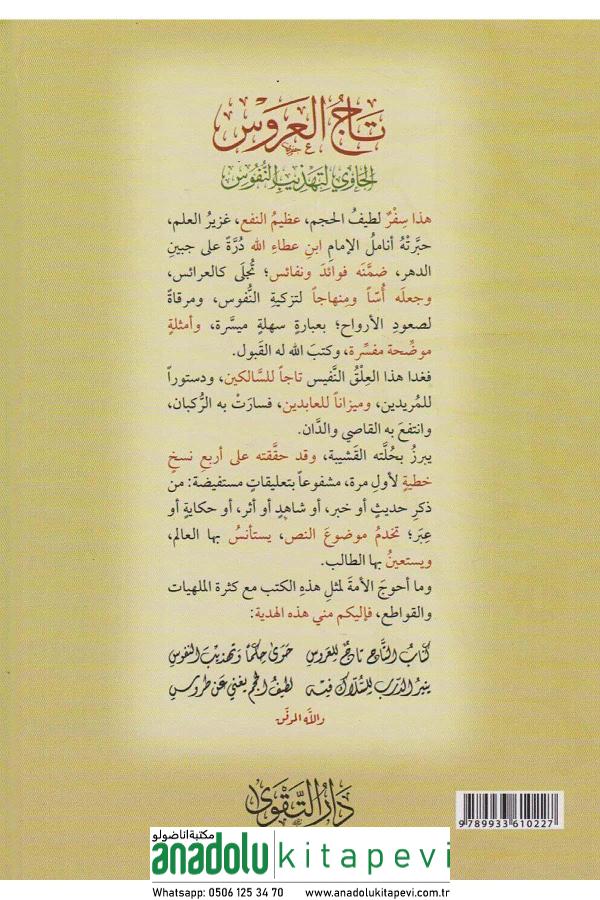 تَاجُ العَرُوسْ
الحَاوِي لِتَهْذِيبِ النُّفُوسْ
هذا سِفْرٌ لطيفُ الحجم، عظيمُ النفع، غزيرُ العلم،
حبَّرتْهُ أناملُ الإمامِ ابنِ عطاءِ الله دُرَّةً على جبينِ
الدهر، ضمَّنَه فوائدَ ونفائس؛ تُجلَى كالعرائس،
وجعلَه أُسّاً ومِنهاجاً لتزكيةِ النُّفوس، ومرقاةً
لصعودِ الأرواح؛ بعبارةٍ سهلةٍ ميسَّرة، وأمثلةٍ
موضِّحة مفسِّرة، وكتبَ الله له القَبول.
فغدا هذا العِلْقُ النَّفيس تاجاً للسَّالكين، ودستوراً
للمُريدين، وميزاناً للعابدين، فسارَتْ به الرُّكبان،
وانتفعَ به القاصي والدَّان.
يبرزُ بحُلَّته القَشيبة، وقد حقَّقته على أربعِ نسخٍ
خطيةٍ لأولِ مرة، مشفوعاً بتعليقاتٍ مستفيضة: من
ذكرِ حديثٍ أو خبر، أو شاهدٍ أو أثر، أو حكايةٍ أو
عِبَر؛ تخدمُ موضوعَ النص، يستأنسُ بها العالم،
ويستعينُ بها الطالب.
وما أحوجَ الأمةَ لمثلِ هذهِ الكتب مع كثرة الملهيات
والقواطع، فإليكم مني هذه الهدية:
كتابُ التَّاجِ تاجٌ للعروسِ حَوَى حِكَمًا وتهذيبَ النفوسِ
ينيرُ الدربَ للسُّلاكِ فيهِ لطيفُ الحجمِ يغني عن طروسِ
والله الموفق
دَارُ التَّقْوَى
9 789933 610227
مكتبة اناضولو
anadolu kitapevi
Whatsapp: 0506 125 34 70 www.anadolukitapevi.com.tr